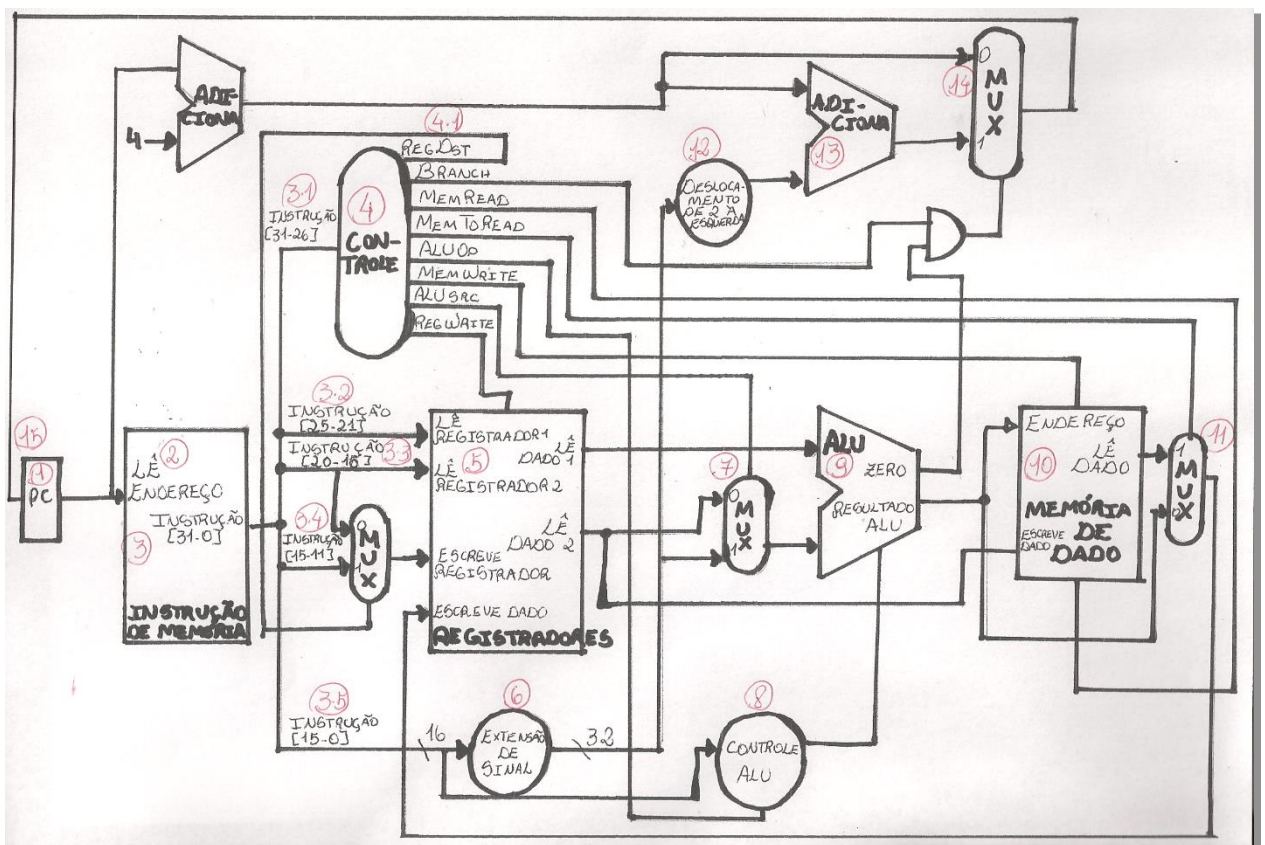 ADI-
CIONA
4
4.1
REGDST
BRANCH
MEMREAD
MEMTOREAD
ALUOP
MEMWRITE
ALUSRC
REGWRITE
3.1
INSTRUÇÃO
[31-26]
4
CON-
TROLE
12
DESLOCA-
MENTO
DE 2 A
ESQUERDA
ADI-
CIONA
13
14
0
MUX
1
15
1
PC
2
LÊ
ENDEREÇO
INSTRUÇÃO
[31-0]
3
INSTRUÇÃO
DE MEMÓRIA
3.2
INSTRUÇÃO
[25-21]
INSTRUÇÃO
[20-16]
3.3
3.4
INSTRUÇÃO
[15-11]
0
MUX
1
LÊ
REGISTRADOR 1
5
LÊ
DADO 1
LÊ
REGISTRADOR 2
LÊ
DADO 2
ESCREVE
REGISTRADOR
ESCREVE DADO
REGISTRADORES
7
0
MUX
1
ALU
9
ZERO
RESULTADO
ALU
ENDEREÇO
LÊ
DADO
10
MEMÓRIA
DE
DADO
ESCREVE
DADO
11
1
MUX
0
3.5
INSTRUÇÃO
[15-0]
16
6
EXTENSÃO
DE
SINAL
32
8
CONTROLE
ALU